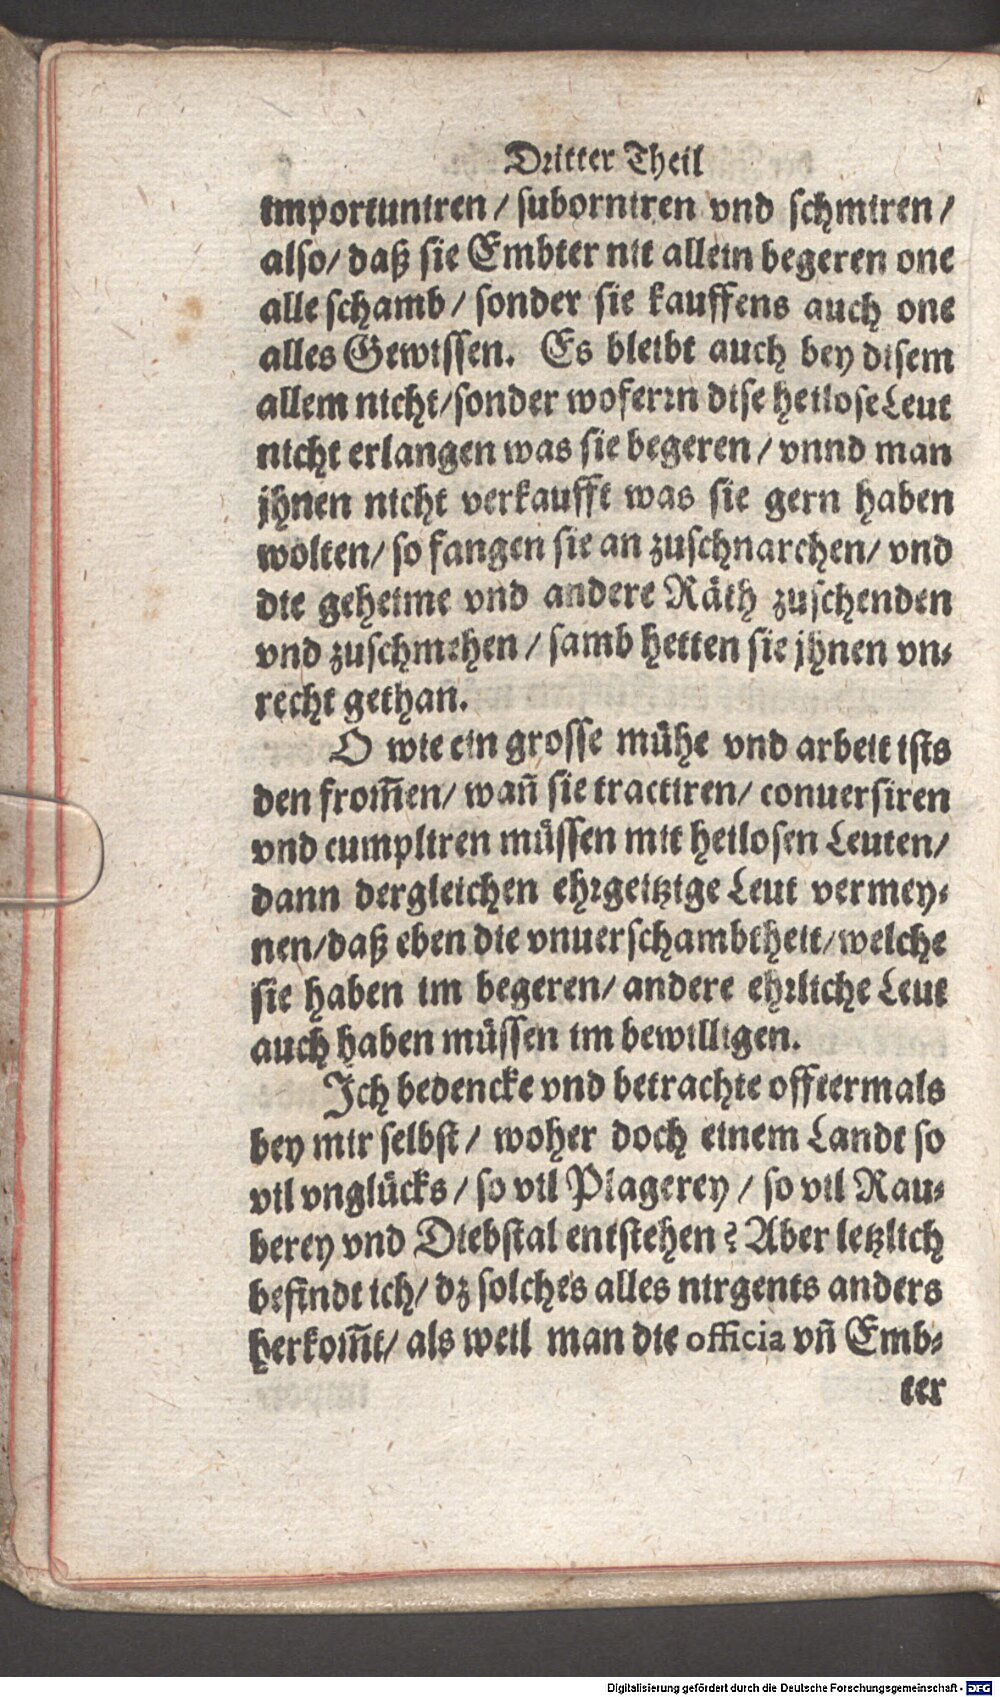 Dritter Theil
importuniren / suborniren vnd schmiren /
also / daß sie Embter nit allein begeren one
alle schamb / sonder sie kauffens auch one
alles Gewissen. Es bleibt auch bey disem
allem nicht / sonder woferrn dise heilose Leut
nicht erlangen was sie begeren / vnnd man
jhnen nicht verkaufft was sie gern haben
wolten / so fangen sie an zuschnarchen / vnd
die geheime vnd andere Räth zuschenden
vnd zuschmehen / samb hetten sie jhnen vn⸗
recht gethan.
O wie ein grosse mühe vnd arbeit ists
den from̃en / wañ sie tractiren / conuersiren
vnd cumpliren müssen mit heilosen Leuten /
dann dergleichen ehrgeitzige Leut vermey⸗
nen / daß eben die vnuerschambtheit / welche
sie haben im begeren / andere ehrliche Leut
auch haben müssen im bewilligen.
Ich bedencke vnd betrachte offtermals
bey mir selbst / woher doch einem Landt so
vil vnglücks / so vil Plagerey / so vil Rau⸗
berey vnd Diebstal entstehen? Aber letzlich
befindt ich / dz solches alles nirgents anders
herkom̃t / als weil man die officia vñ Emb⸗
ter
Digitalisierung gefördert durch die Deutsche Forschungsgemeinschaft - DFG